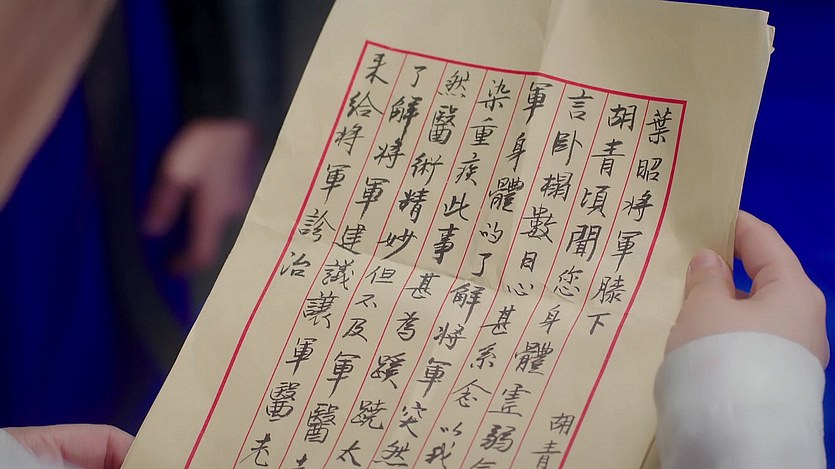 葉昭將軍膝下胡青
胡青頃聞您身體虛弱
言臥榻數日心甚系念以我
軍身體的了解將軍突然
染重疾此事甚為蹊蹺太
然醫術精妙但不及軍醫
了解將軍建議讓軍醫老
來給將軍診治